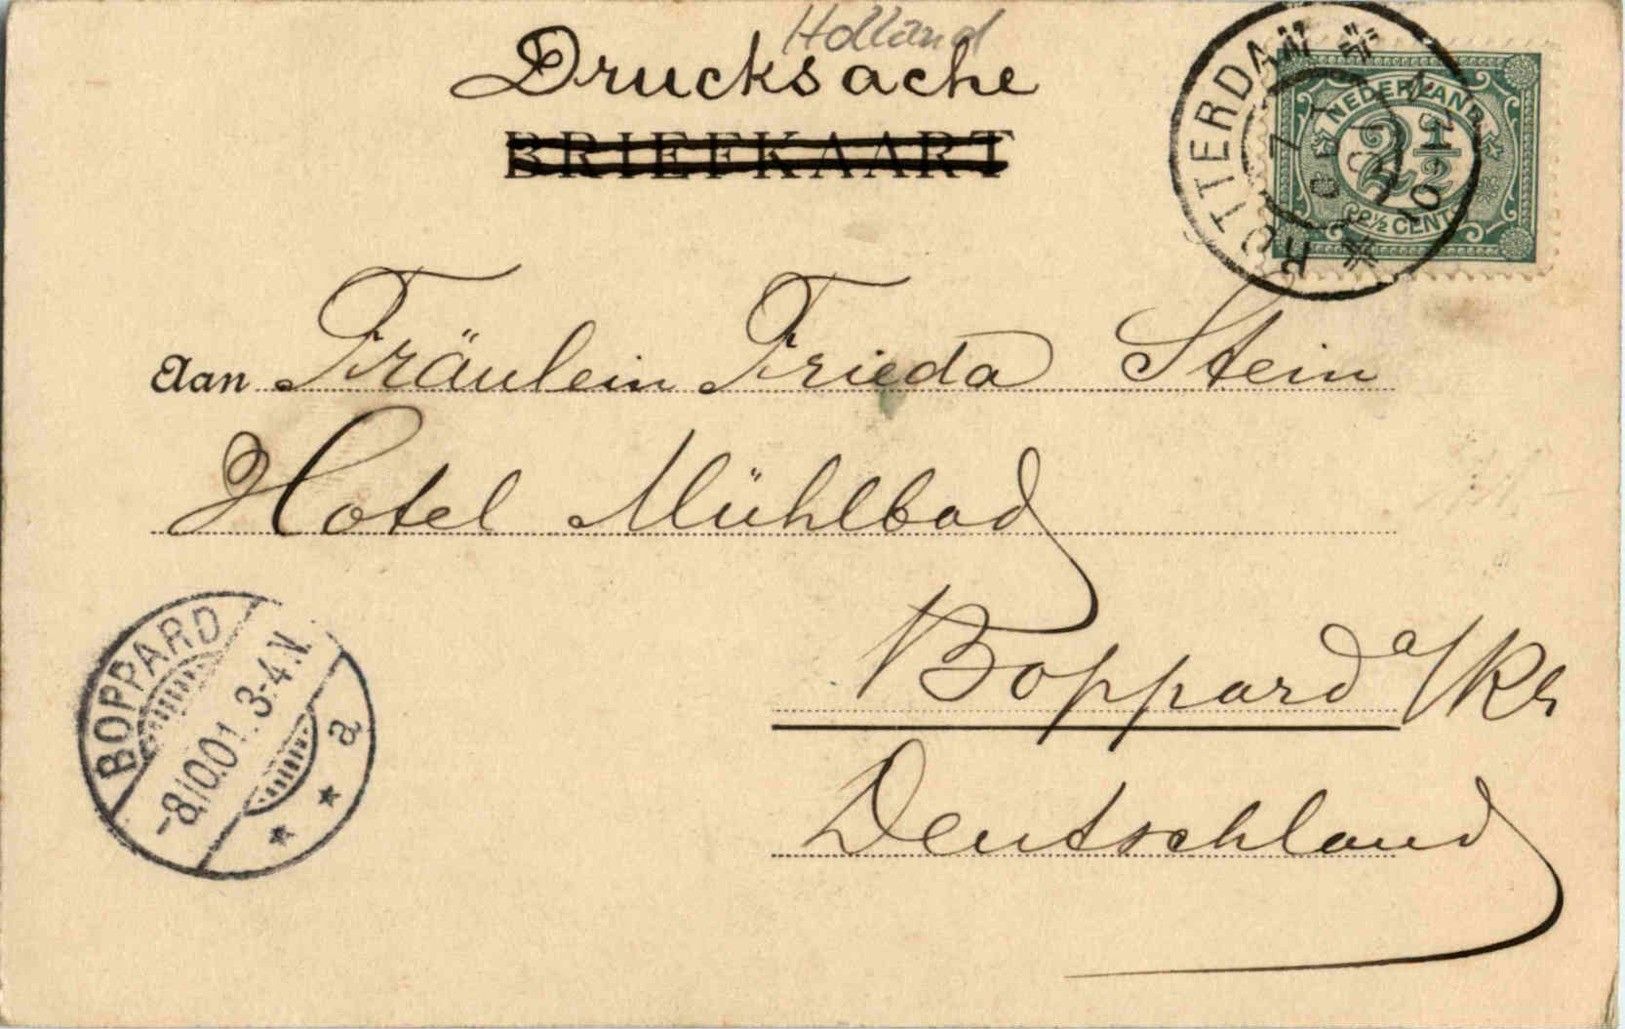 Holland
Drucksache
BRIEFKAART
NEDERLAND
2½
2½ CENT
ROTTERDAM
Aan Fräulein Frieda Stein
Hotel Mühlbad
Boppard a/Rh
Deutschland
BOPPARD
-8.10.01. 3-4.N.
a